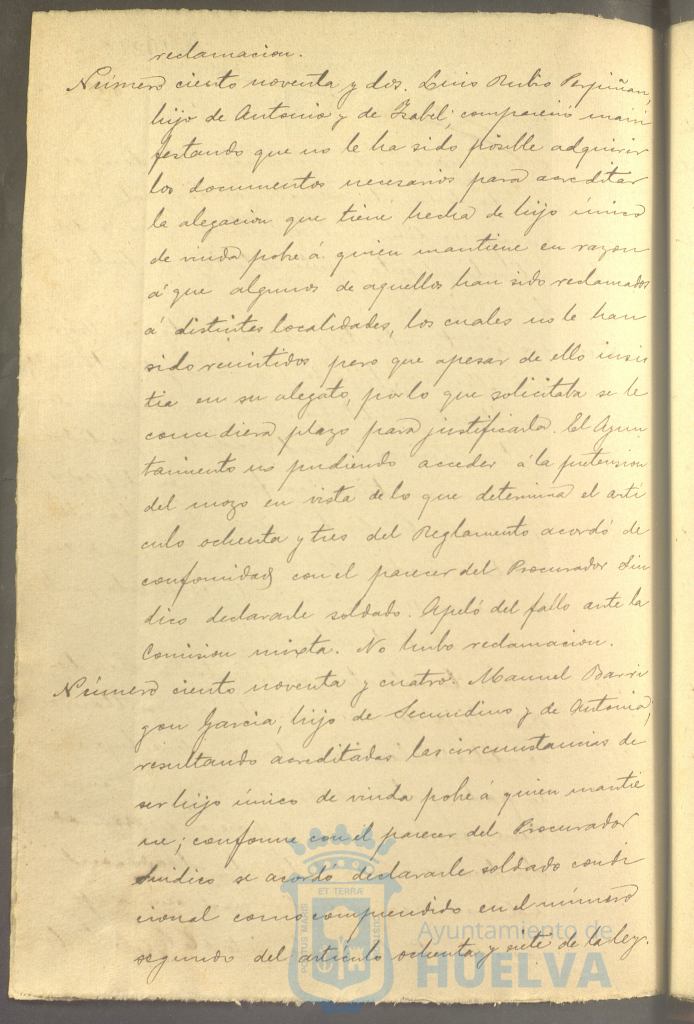 reclamacion.
Número ciento noventa y dos. Luis Rubio Perpiñan,
hijo de Antonio y de Isabel; compareció mani
festando que no le ha sido posible adquirir
los documentos necesarios para acreditar
la alegacion que tiene hecha de hijo único
de viuda pobre á quien mantiene en razon
á que algunos de aquellos han sido reclamados
á distintas localidades, los cuales no le han
sido remitidos pero que apesar de ello insis
tia en su alegato, por lo que solicitaba se le
concediera plazo para justificarla. El Ayun
tamiento no pudiendo acceder á la pretension
del mozo en vista de lo que determina el arti
culo ochenta y tres del Reglamento acordó de
conformidad con el parecer del Procurador Sin
dico declararle soldado. Apeló del fallo ante la
Comision mixta. No hubo reclamacion.
Número ciento noventa y cuatro. Manuel Barri
gon Garcia, hijo de Secundino y de Antonia,
resultando acreditadas las circunstancias de
ser hijo único de viuda pobre á quien mantie
ne; conforme con el parecer del Procurador
Sindico se acordó declararle soldado condi
cional como comprendido en el número
segundo del articulo ochenta y siete de la ley.
PORTUS MARIS ET TERRÆ CUSTODIA
Ayuntamiento de
HUELVA